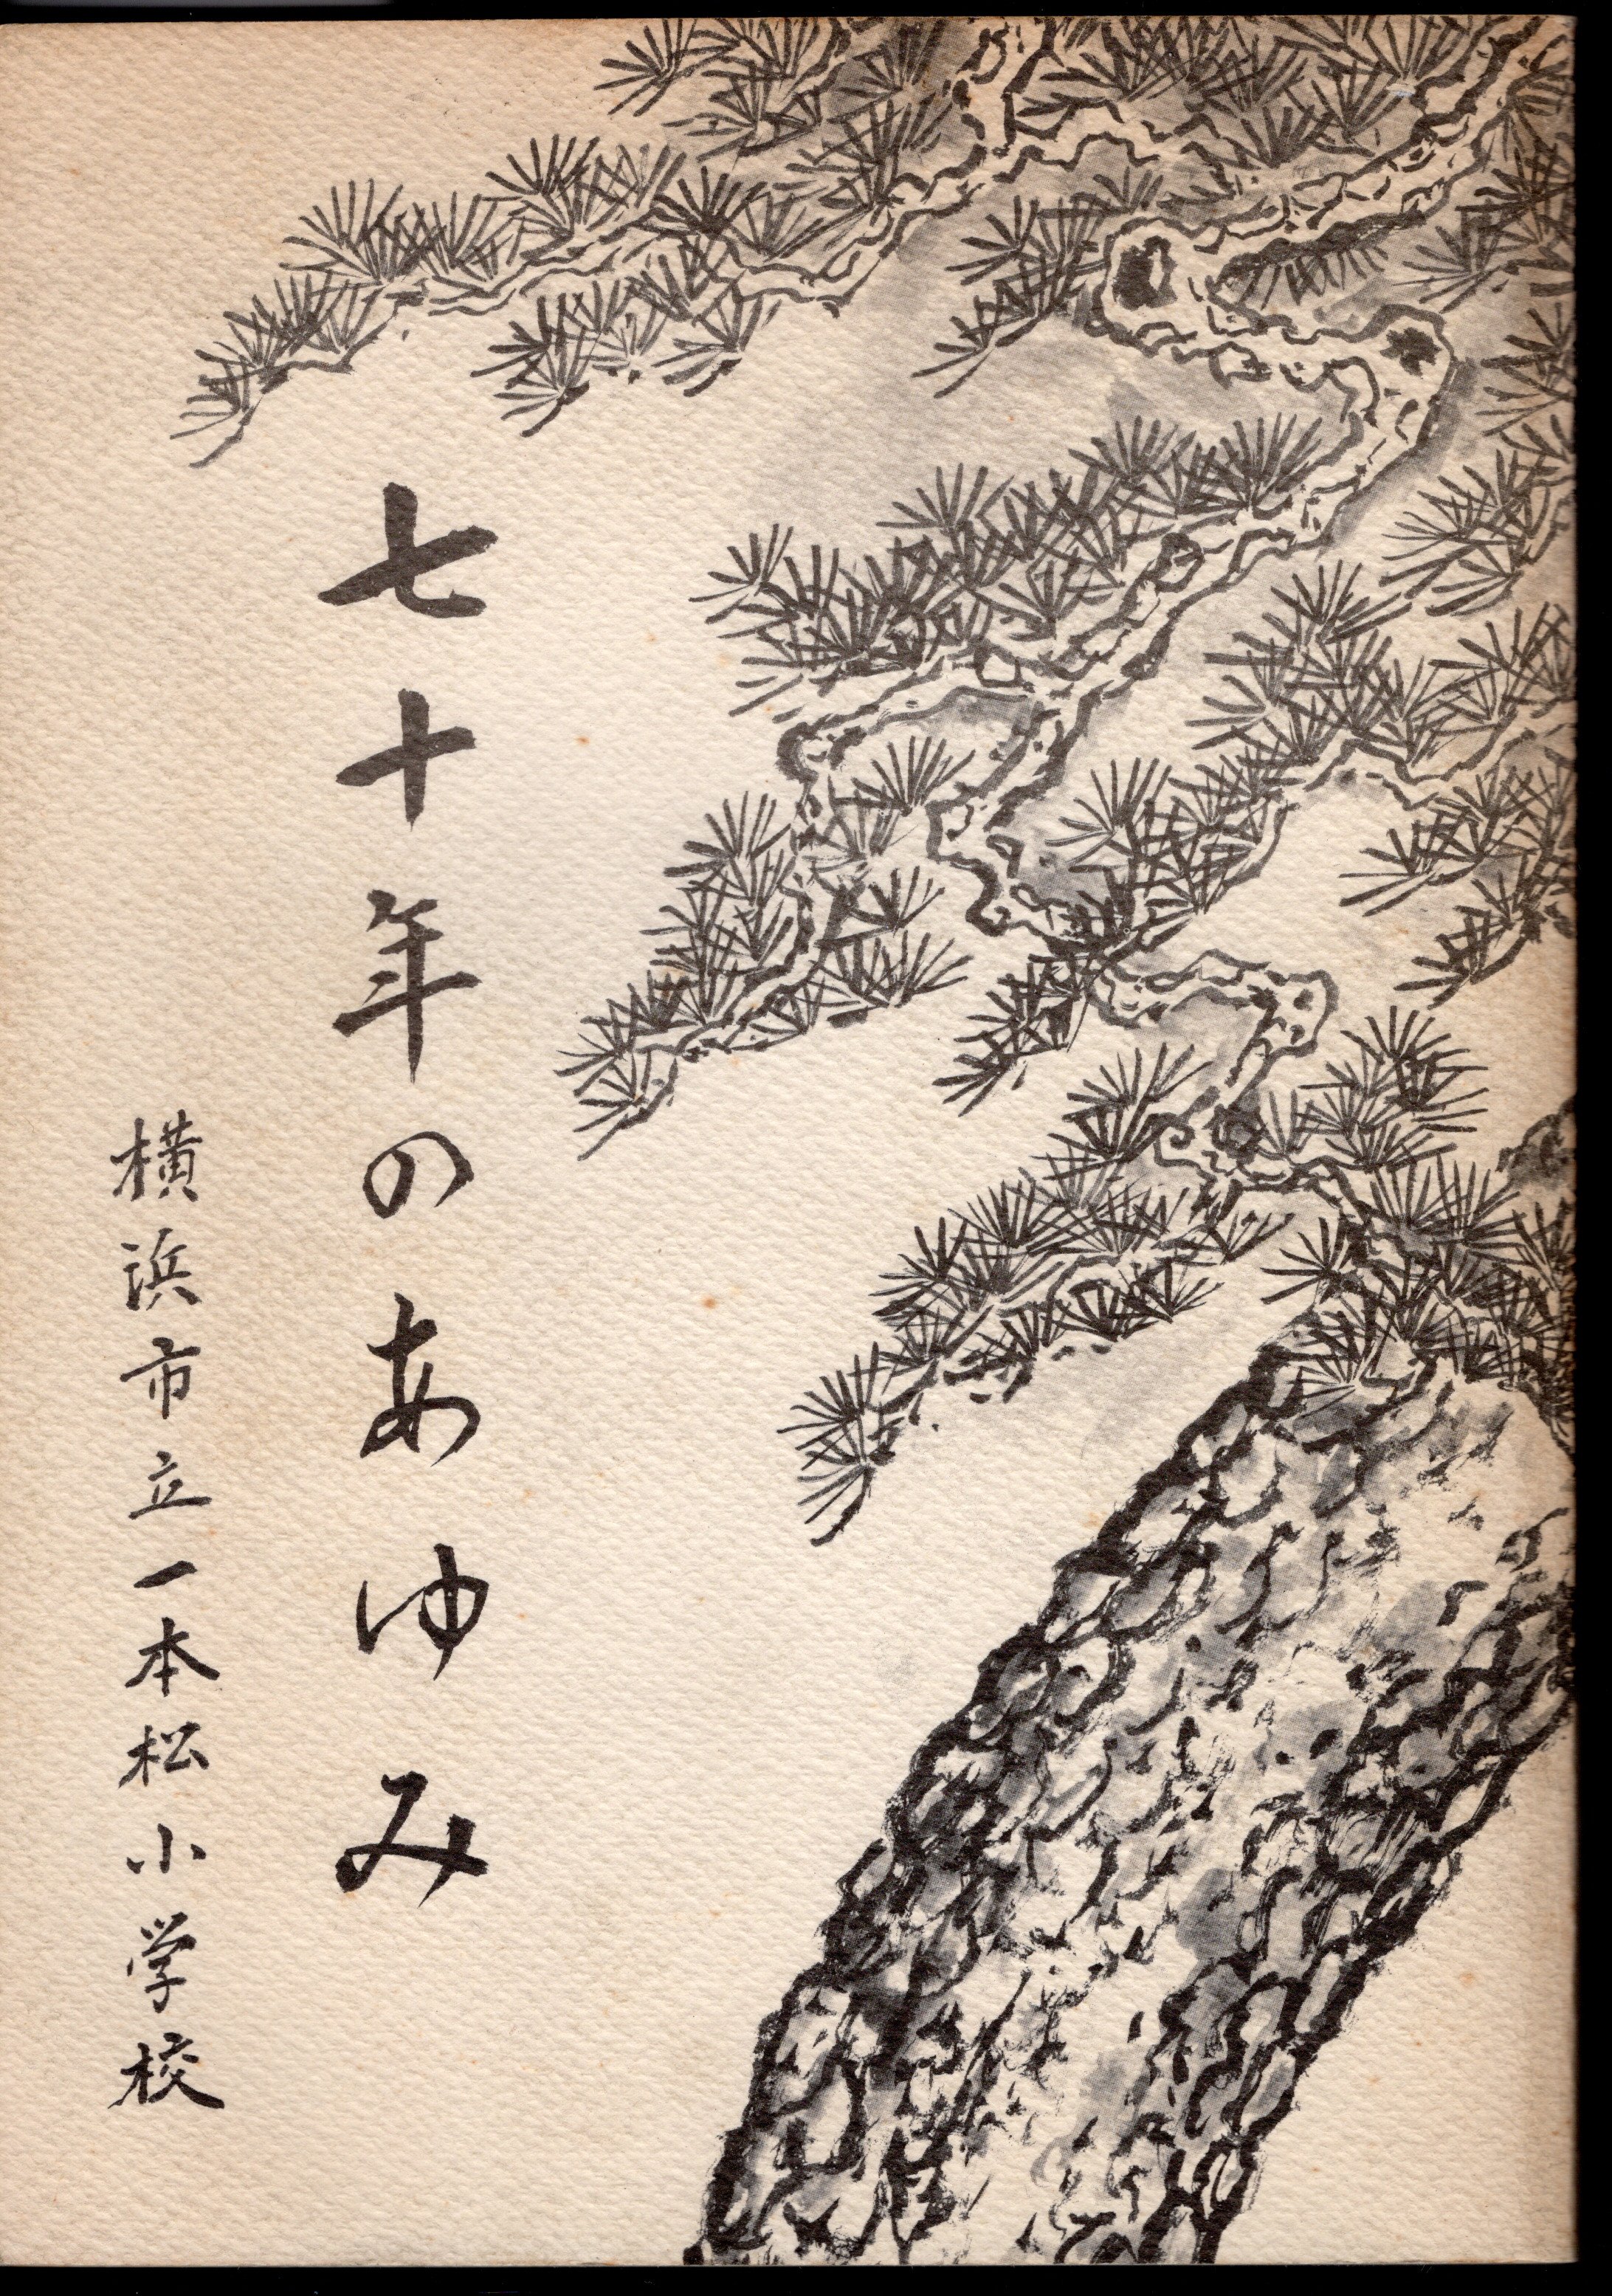 七十年のあゆみ
横浜市立一本松小学校